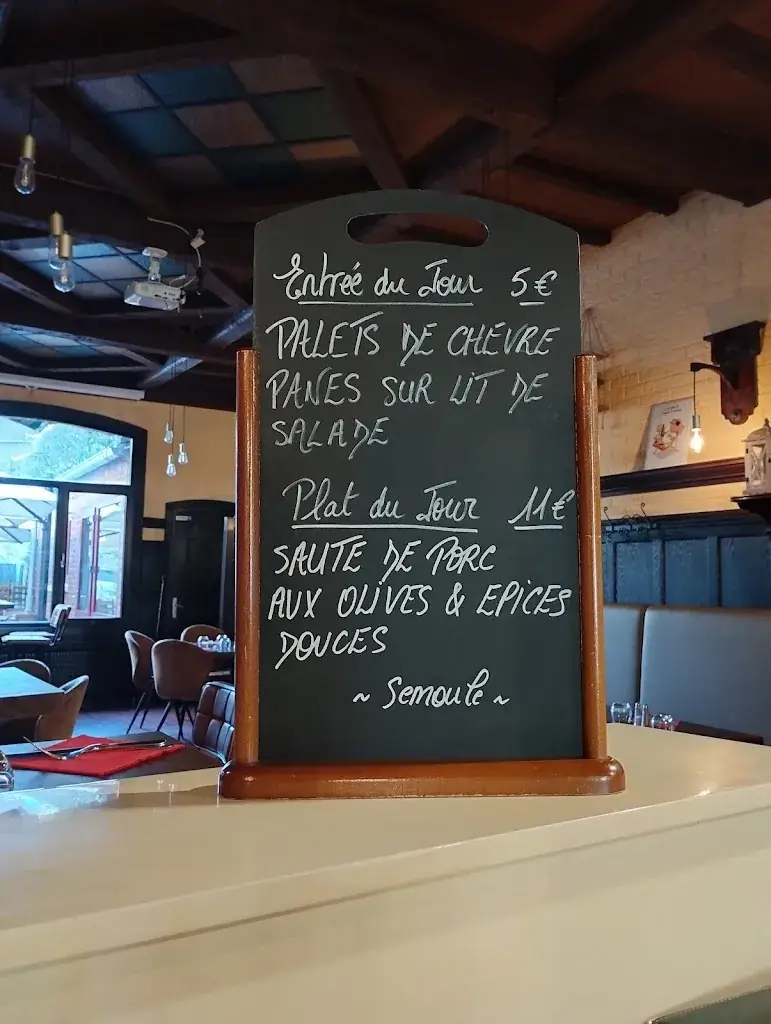 Entrée du Jour 5€
PALETS DE CHEVRE
PANES SUR LIT DE
SALADE
Plat du Jour 11€
SAUTE DE PORC
AUX OLIVES & EPICES
DOUCES
~ Semoule ~